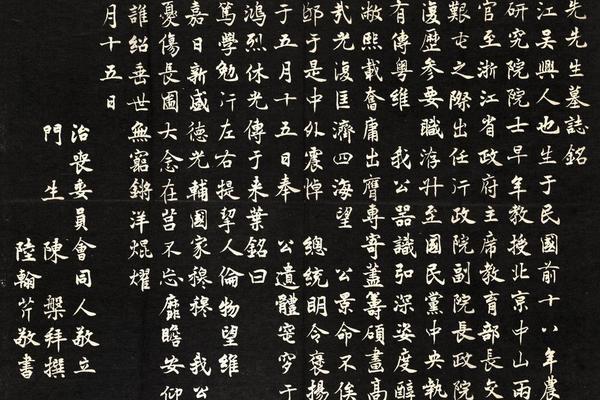 先先生墓誌銘
江吳興人也生于民國前十八年農
研究院院士早年教授北京中山兩
官至浙江省政府主席教育部長交
艱屯之際出任行政院副院長政院
復歷參要職洊升至國民黨中央執
有傳粵維 我公器識弘深姿度醇
敝熙載奮庸出膺專寄蓋籌碩畫高
光復匡濟四海望 公景命不俟
于是中外震悼 總統明令褒揚
于五月十五日奉 公遺體窆穸于
鴻烈休光傳于來葉銘曰
篤學勉行左右提挈人倫物望維
嘉日新盛德光輔國家穆穆 我公
憂傷長圖大念在莒不忘靡瞻安仰
誰紹垂世無窮鏘洋焜燿
月十五日
治喪委員會同人敬立
門生 陳槃拜撰
陸翰芹敬書